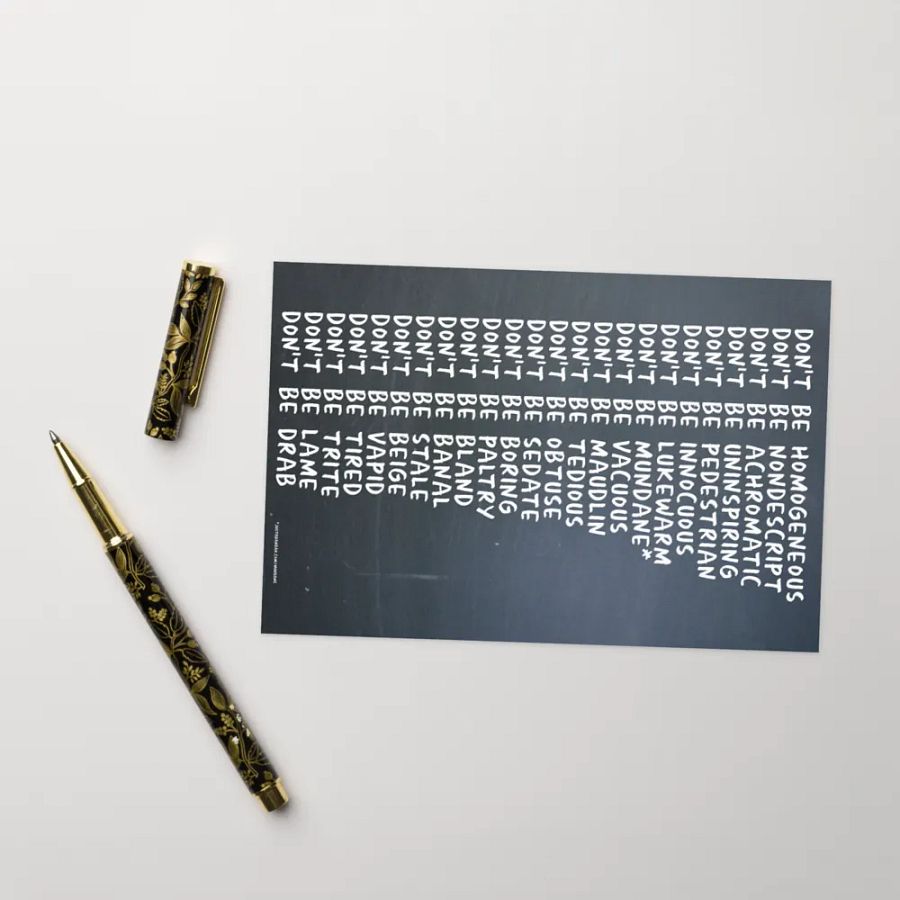 DON'T BE HOMOGENEOUS
DON'T BE NONDESCRIPT
DON'T BE ACHROMATIC
DON'T BE UNINSPIRING
DON'T BE PEDESTRIAN
DON'T BE INNOCUOUS
DON'T BE LUKEWARM
DON'T BE MUNDANE*
DON'T BE VACUOUS
DON'T BE MAUDLIN
DON'T BE TEDIOUS
DON'T BE OBTUSE
DON'T BE SEDATE
DON'T BE BORING
DON'T BE PALTRY
DON'T BE BLAND
DON'T BE BANAL
DON'T BE STALE
DON'T BE BEIGE
DON'T BE VAPID
DON'T BE TIRED
DON'T BE TRITE
DON'T BE LAME
DON'T BE DRAB